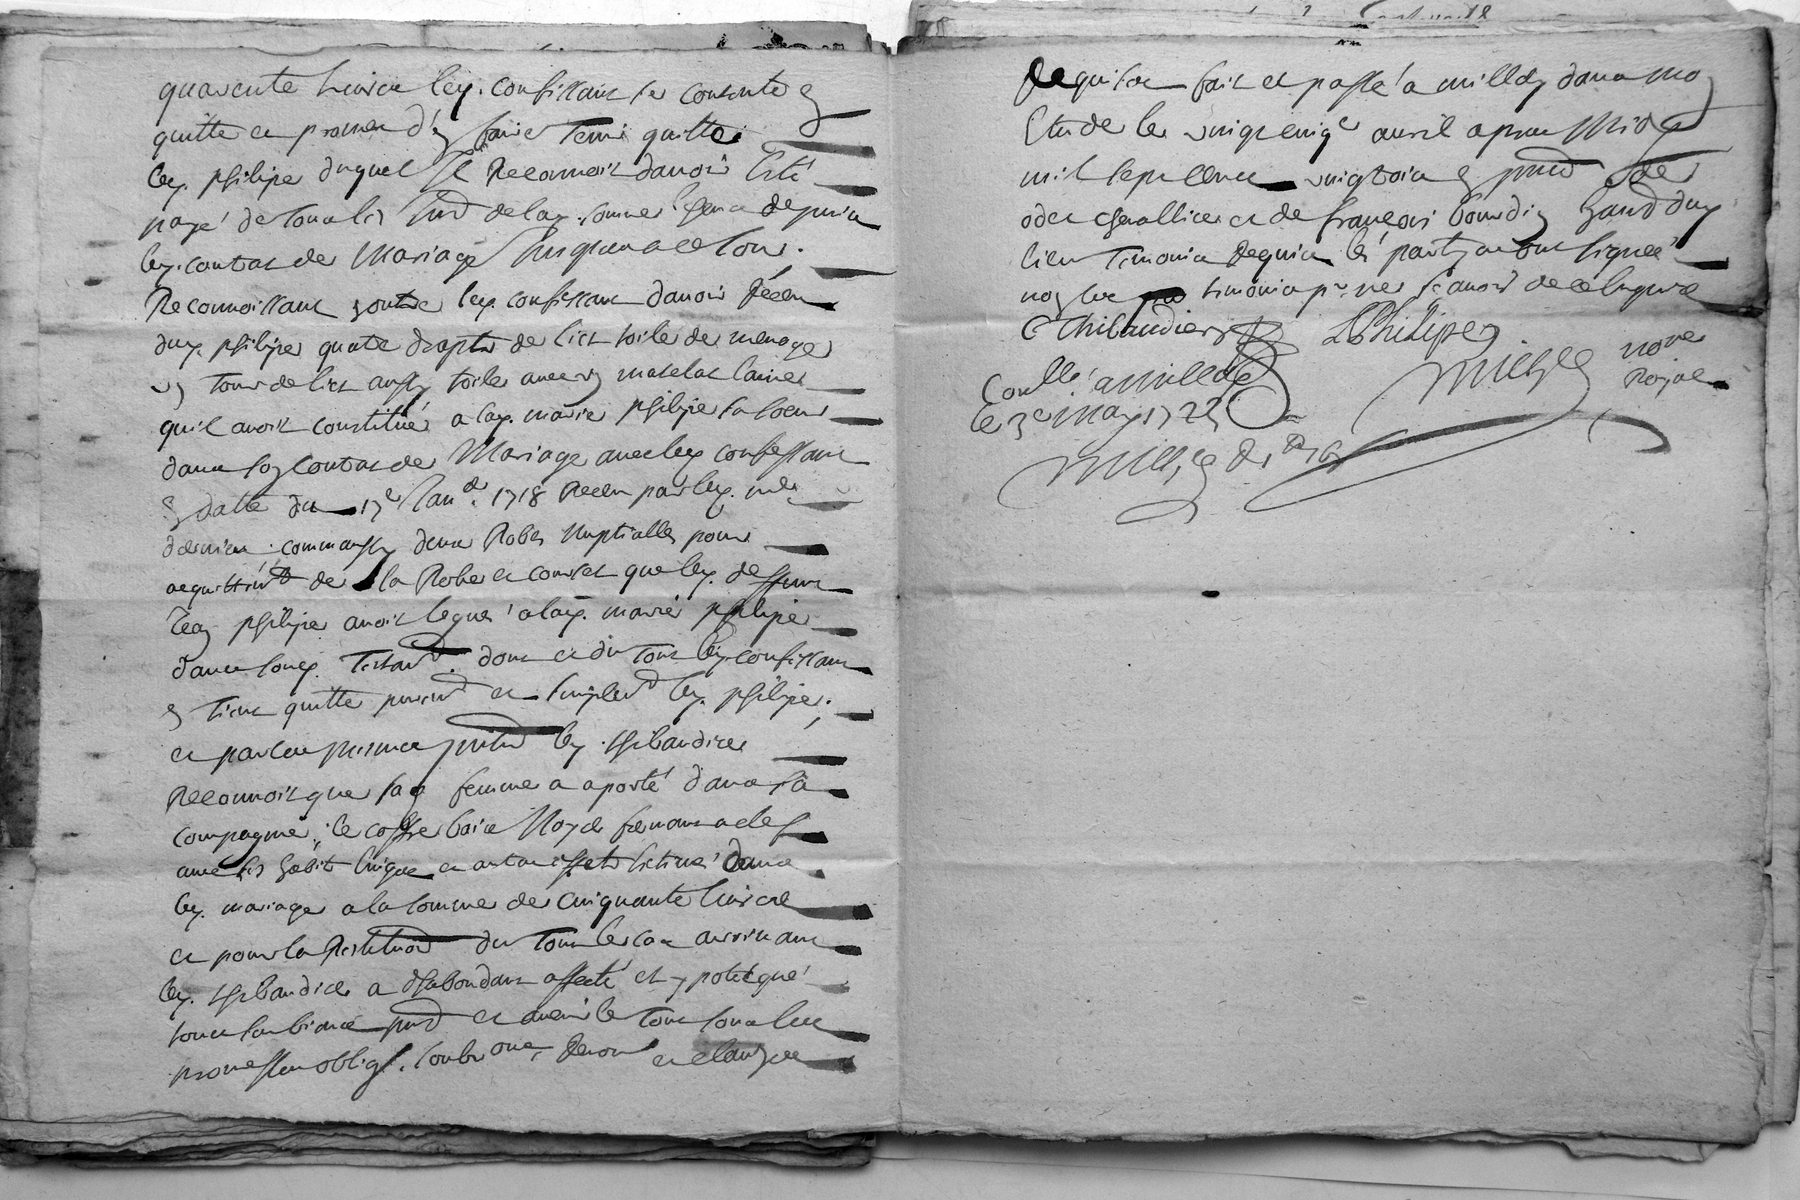 quarente livres leq. confessant se contente &
quitte et promet d'en faire tenir quitte
leq. philipe duquel il Reconnoit davoir esté
payé de tous les de lad. somme depuis
led. contrat de Mariage jusques a ce jour.
Reconnoissant en outre leq. confessant davoir Receu
duq. philipe quatre draptz de lict toile de menage
un tour de lict aussy toile avec un matelat laine
quil avoit constitué a laq. marie philipe sa soeur
dans son Contrat de Mariage avec leq confessant
en datte du 17e Janr. 1718 Receu par leq. no.re
dernier comm'aussy deux Robes nuptialles pour
acquittent de la Robe et corset que leq. deffunt
Jean philipe avoit legué a laq. marie philipe
dans sond. Testant. dont et du tout leq. confessant
en tient quitte purem.t et simplem.t leq. philipe.
et par ces presentes leq thibaudier
Reconnoit que sad femme a aporté dans sa
compagnie, le coffre bois Noyer fermant a clef
avec ses habit linge et autres effets estimés dans
leq. mariage a la somme de cinquante livres
et pour la Restituon du tout le cas arrivant
leq. thibaudier a dhabondant affecté et ypotequé
tous ses biens pnt et avenir le tout sous les
promesses oblig. soubmons, Renon et clauzes
Requises fait et passé a millay dans mon
Etude le vingt cinqe avril apres Midy
mil sept cents vingt trois en pnce de
odet chevallier et de francois bourdin duq
lieu Temoins Requis les parties ont signé
non les temoins pr. ne scavoir de ce enquis
C Thibaudier J Philipe
notre
Royal
Conllé a millay
le 3e may 1723